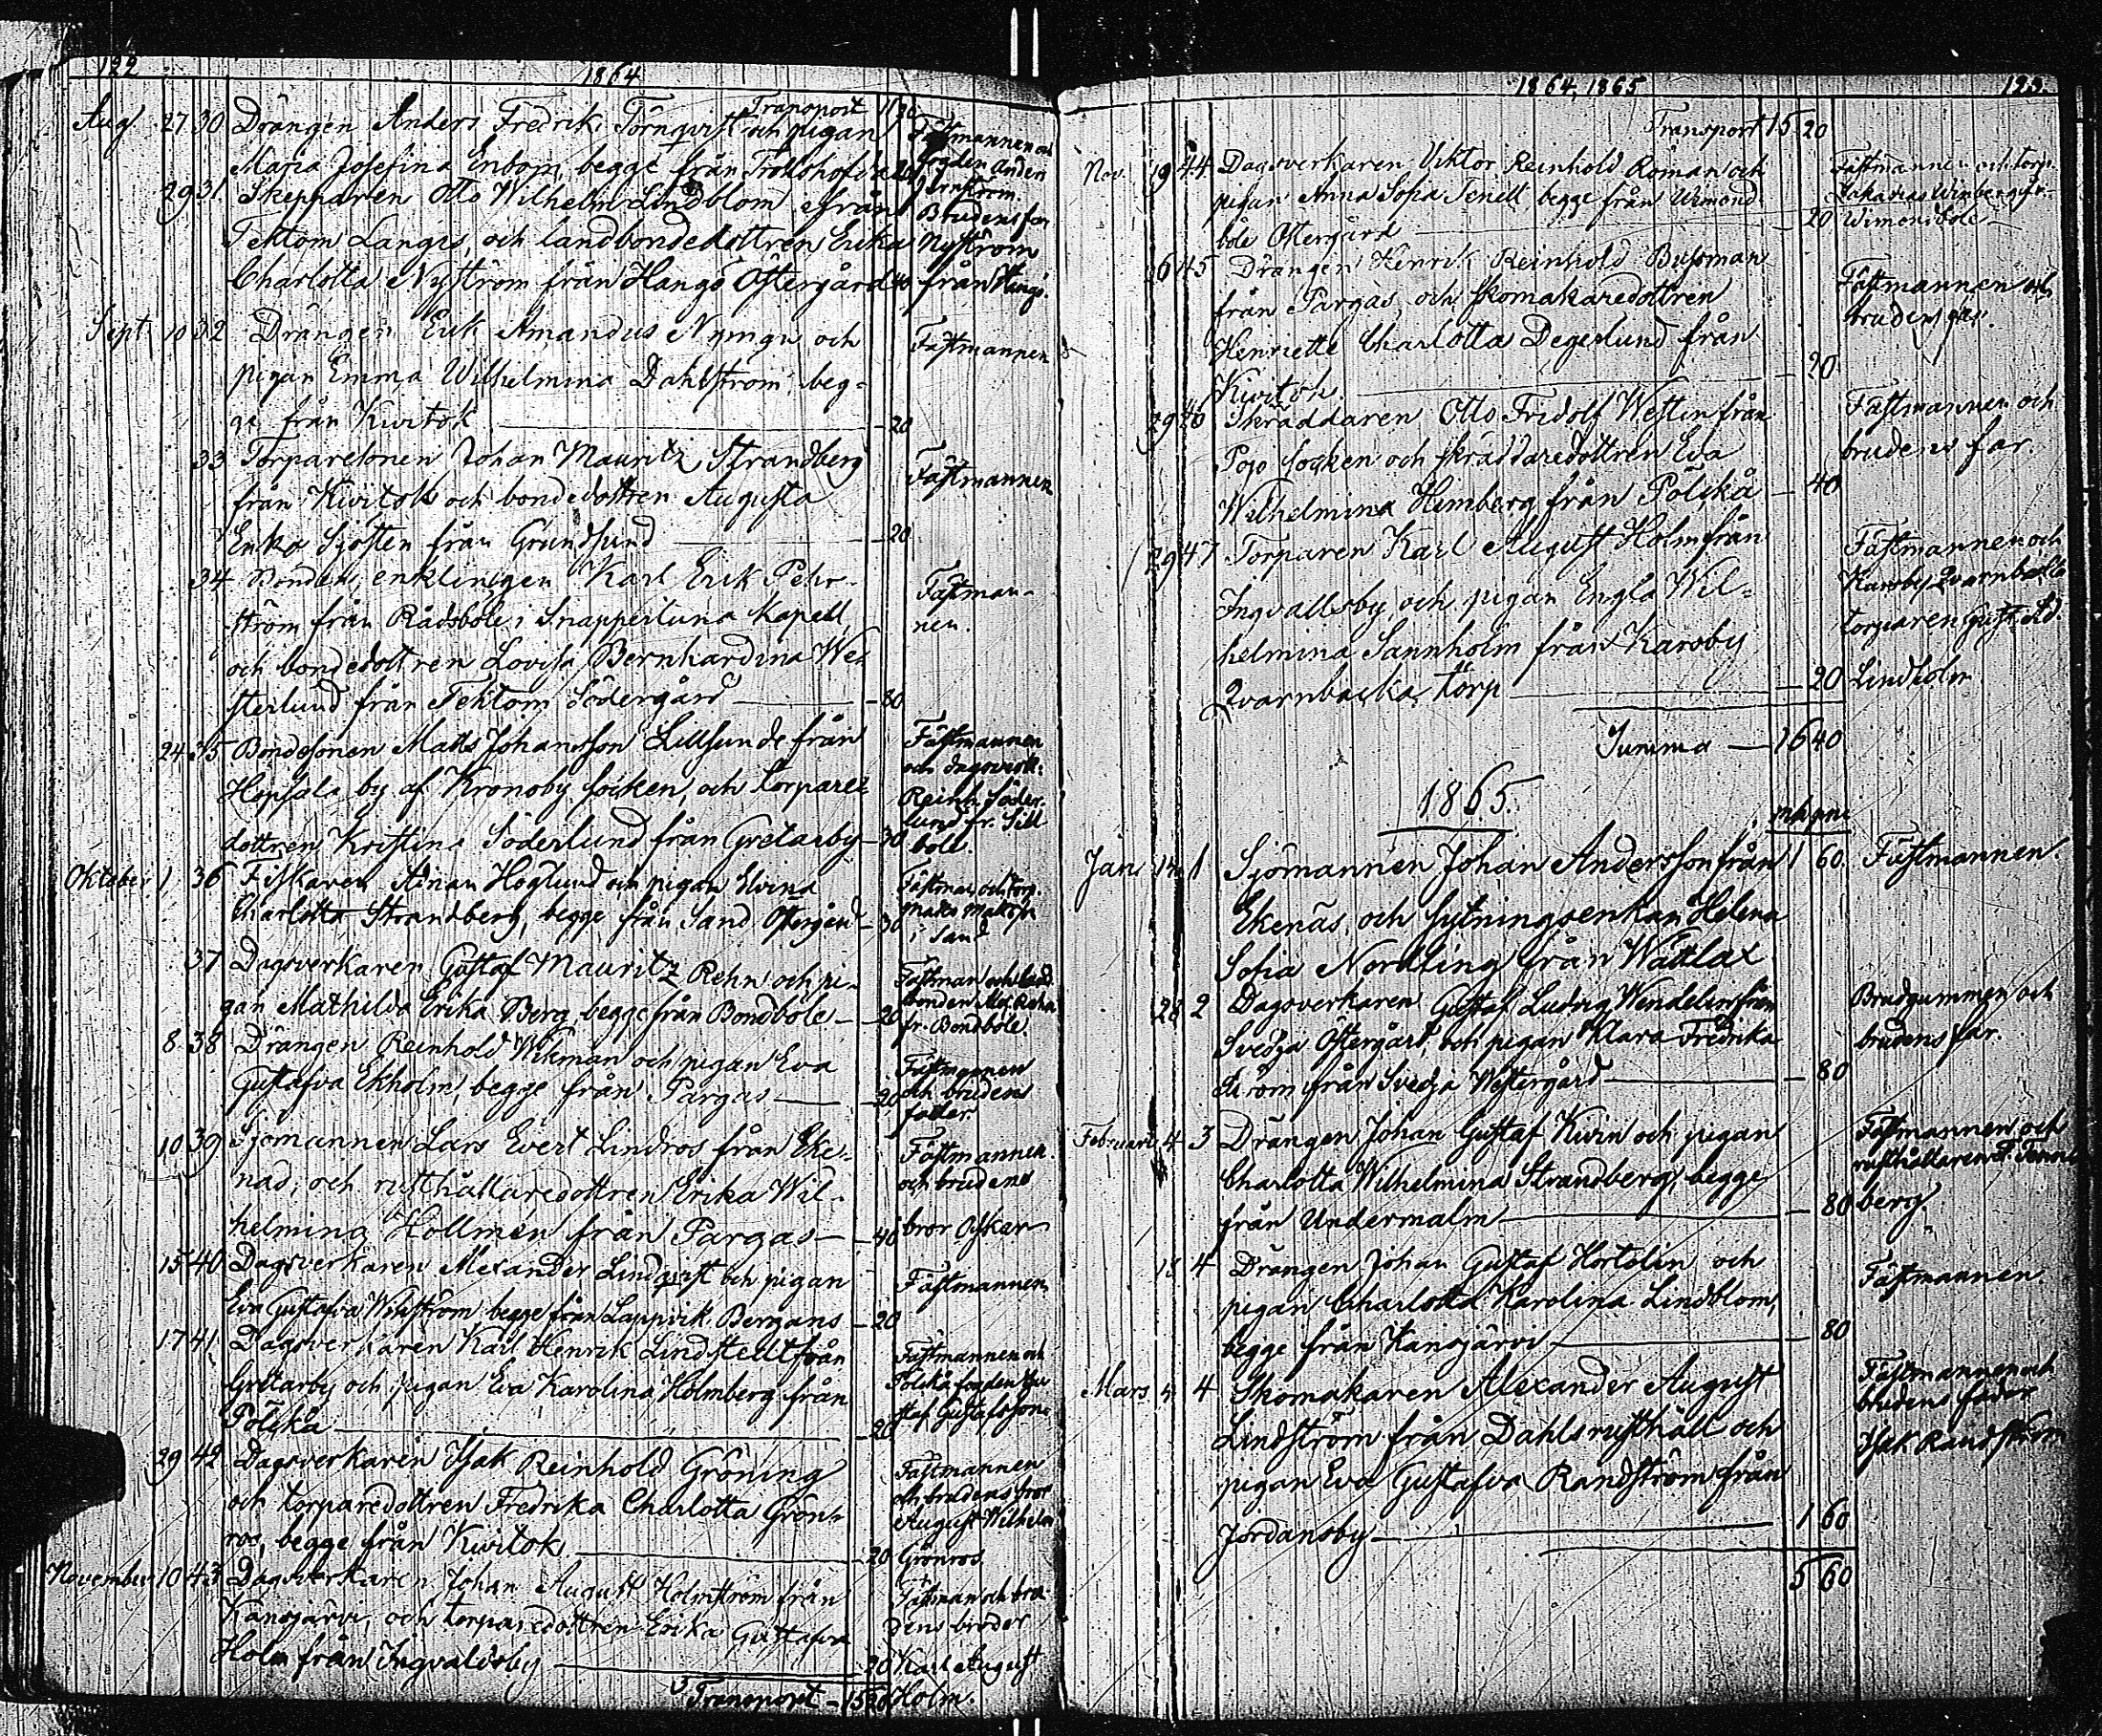 122
1864
Transport 11 20
Aug 27 30 Drängen Anders Fredrik Törnqvist och pigan Fästmannen och
Maria Josefina Enbom, begge från Trollshofda 20 fogden Anders Jernström.
29 31 Skepparen Otto Wilhelm Lindblom ifrån Brudens far
Tektom Langis, och landbondedottren Erika Nyström
Charlotta Nyström från Hangö Östergård 40 från Hangö.
Sept. 10 32 Drängen Erik Amandus Nyman och Fästmannen
pigan Emma Wilhelmina Dahlström, beg-
ge från Kivitok 20
33 Torparesonen Johan Mauritz Strandberg Fästmannen
från Kivitok och bondedottren Augusta
Erika Sjösten från Grundsund 20
34 Bonden, enklingen Karl Erik Pehr- Fästman-
ström från Rådsböle i Snappertuna Kapell, nen.
och bondedottren Lovisa Bernhardina We-
sterlund från Tektom Södergård 80
24 35 Bondesonen Matts Johansson Lillsunde från Fästmannen
och dagsverk.
Hopsala by af Kronoby socken, och torpare- Reinh. Söder-
lund fr. Sill
dottren Kristina Söderlund från Gretarby 30 böle.
Oktober 1 36 Fiskaren Adrian Höglund och pigan Elvina Fästman och torp.
Charlotta Strandberg, begge från Sand Östergård 30 Matts Mattss
i Sand
37 Dagsverkaren Gustaf Mauritz Rehn och pi- Fästman och land
gan Mathilda Erika Berg, begge från Bondböle 20 bonden Rehn
fr. Bondböle.
8 38 Drängen Reinhold Wikman och pigan Eva Fästmannen
Gustafva Ekholm, begge från Pargas 20 och brudens
fader
10 39 Sjömannen Lars Evert Lindros från Eke- Fästmannen
näs, och rusthållaredottren Erika Wil- och brudens
helmina Hollmén från Pargas 40 bror Oskar
15 40 Dagsverkaren Alexander Lindqvist och pigan Fästmannen
Eva Gustafva Wikström, begge från Lappvik Bergans 20
17 41 Dagsverkaren Karl Henrik Lindstedt från Fästmannen och
Gretarby och pigan Eva Karolina Holmberg från Pölskå fogden Gu
Pölskå 20 staf Gustafsson
29 42 Dagsverkaren Isak Reinhold Gröning Fästmannen
och torparedottren Fredrika Charlotta Grön- och brudens bror
August Wilhelm
ros, begge från Kivitok 20 Grönros
November 10 43 Dagsverkaren Johan August Holmström från Fästman och bru-
Kansjärvi, och torparedottren Erika Gustafva dens broder
Holm från Ingvaldsby 20 Karl August
Transport 15 20 Holm.
1864, 1865
123.
Transport 15 20
Nov. 19 44 Dagsverkaren Viktor Reinhold Roman och Fästmannen och torp.
pigan Anna Sofia Tenell begge från Wimond- Zakarias Winberg fr.
böle Östergård 20 Wimondböle
26 45 Drängen Henrik Reinhold Bussman Fästmannen och
från Pargas, och skomakaredottren brudens far.
Henriette Charlotta Degerlund från
Kivitok 20
29 46 Skräddaren Otto Fridolf Westin från Fästmannen och
Pojo socken och skräddaredottren Eva brudens far.
Wilhelmina Heimberg från Pölskå 40
29 47 Torparen Karl August Holm från Fästmannen och
Ingvallsby, och pigan Engla Wil- Karsby Qvarnbacka
helmina Sannholm från Karsby torparen Gust. Ad.
Qvarnbacka torp 20 Lindholm
Summa 16 40
1865.
mk pni
Jan. 14 1 Sjömannen Johan Andersson från 1 60 Fästmannen.
Ekenäs, och sytningsenkan Helena
Sofia Nordling från Wättlax
28 2 Dagsverkaren Gustaf Ludvig Wendelin från Brudgummen och
Svedja Östergård, och pigan Klara Fredrika brudens far.
från Svedja Westergård 80
Februari 4 3 Drängen Johan Gustaf Kivin och pigan Fästmannen och
Charlotta Wilhelmina Strandberg, begge rusthållaren F.
från Undermalm 80 berg.
18 4 Drängen Johan Gustaf Hortolin och Fästmannen
pigan Charlotta Karolina Lindblom,
begge från Kansjärvi 80
Mars 4 4 Skomakaren Alexander August Fästmannen och
Lindström från Dahls rusthåll och brudens fader
pigan Eva Gustafva Randström från Isak Randström
Jordansby 1 60
5 60